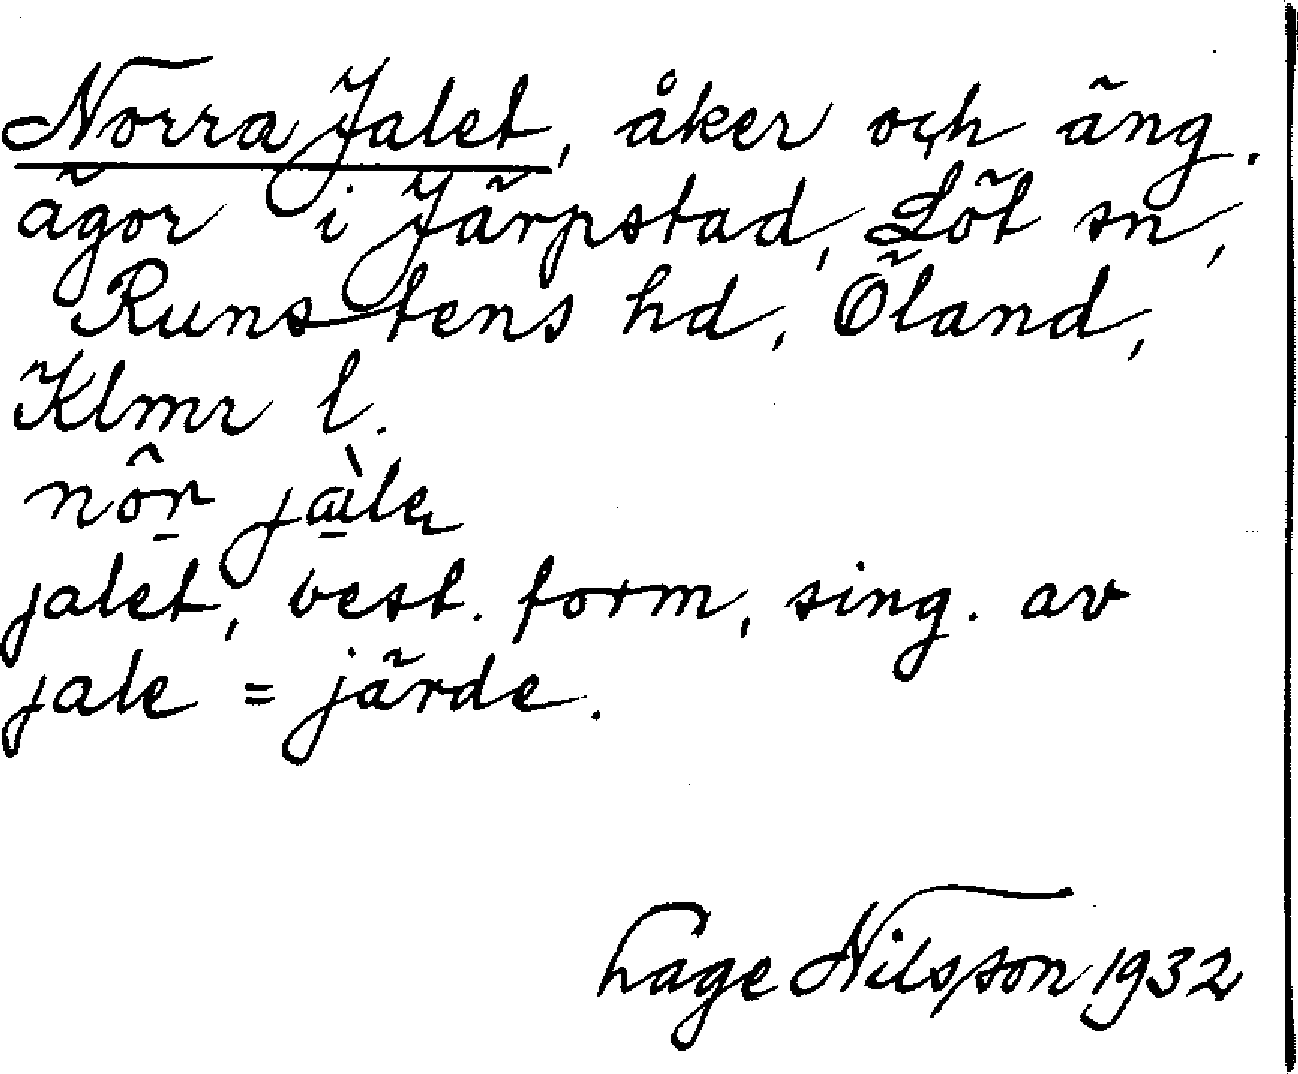 Norra Jalet, åker och äng.
ägor i Järpstad, Löt sn,
Runstens hd, Öland,
Klmr l.
jalet, best. form, sing. av
jale = järde.
Nilsson 1932